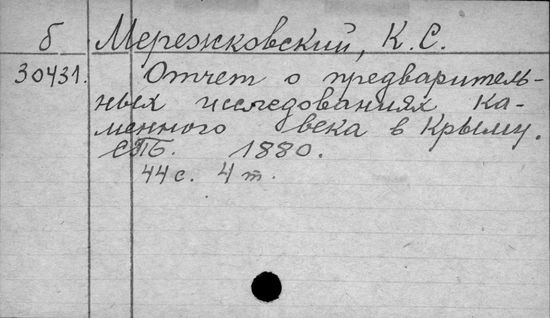 б Мережковский, К. С.
30431. Отчет о предваритель-
ных исследованиях ка-
менного века в Крыму.
СПБ. 1880.
44 с. 4 т.